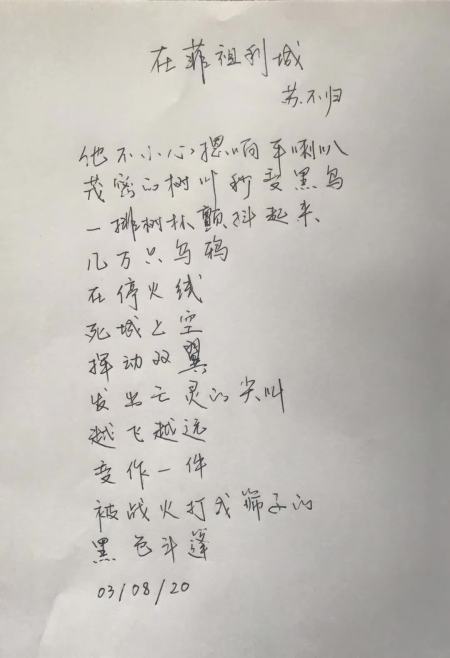 在菲祖利城
苏不归
他不小心摁响车喇叭
茂密的树叶秒变黑鸟
一排树林颤抖起来
几万只乌鸦
在停火线
死城上空
挥动双翼
发出亡灵的尖叫
越飞越远
变作一件
被战火打成筛子的
黑色斗篷
03/08/20